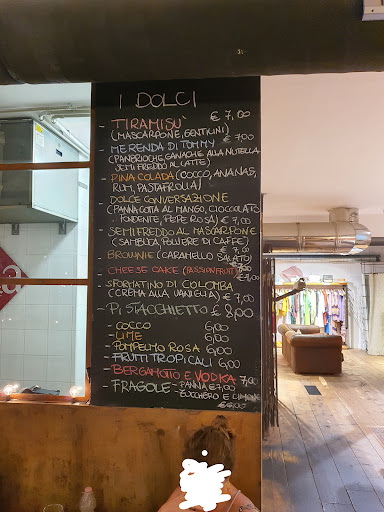 I DOLCI
- TIRAMISU' € 7,00
(MASCARPONE, GENTILINI)
- MERENDA DI TOMMY € 7,00
(PANBRIOCHE, GANACHE ALLA NUTELLA
SEMIFREDDO AL LATTE)
- PINA COLADA (COCCO, ANANAS,
RUM, PASTAFROLLA)
- DOLCE CONVERSAZIONE
(PANNA COTTA AL MANGO, CIOCCOLATO
FONDENTE, PEPE ROSA) € 7,00
- SEMIFREDDO AL MASCARPONE
(SAMBUCA, POLVERE DI CAFFE')
- BROWNIE (CARAMELLO SALATO) € 7,00
- CHEESE CAKE (PASSIONFRUIT)
- SFORMATINO DI COLOMBA
(CREMA ALLA VANIGLIA) € 7,00
- PISTACCHIETTO € 8,00
- COCCO 6,00
- LIME 6,00
- POMPELMO ROSA 6,00
- FRUTTI TROPICALI 6,00
- BERGAMOTTO E VODKA 7,00
- FRAGOLE - PANNA € 7,00
ZUCCHERO E LIMONE
€ 6,00
a